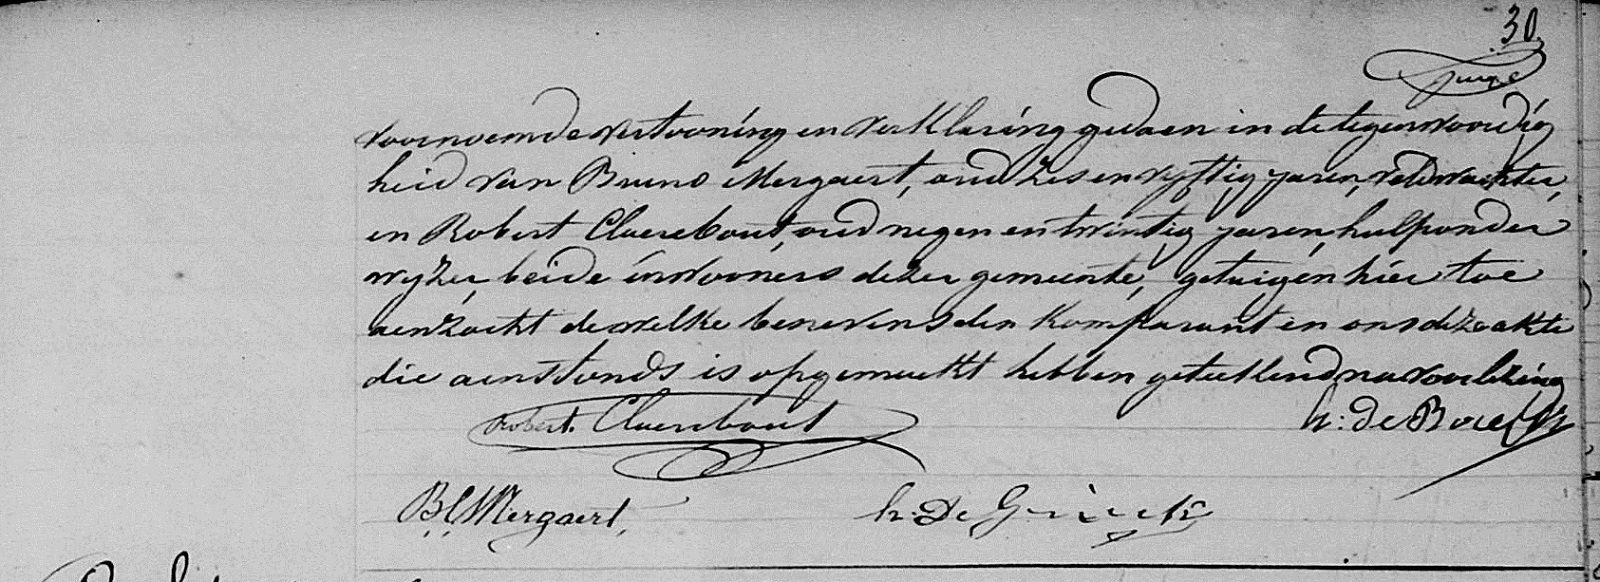 30.
voornoemde vertooning en verklaring gedaen in de tegenwoordig
heid van Bruno Mergaert, oud zes en vyftig jaren, veldwachter,
en Robert Claerebout, oud negen en twintig jaren, hulponder
wyzer, beide inwooners dezer gemeente, getuigen hier toe
aenzocht dewelke benevens den komparant en ons deze akte
die aenstonds is opgemaekt hebben geteekend na voorlezing
Robert Claerebout
B. C. Mergaert,